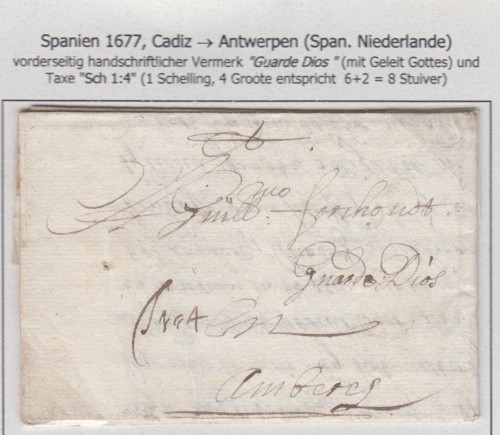 Spanien 1677, Cadiz → Antwerpen (Span. Niederlande)
vorderseitig handschriftlicher Vermerk "Guarde Dios " (mit Geleit Gottes) und
Taxe "Sch 1:4" (1 Schelling, 4 Groote entspricht 6+2 = 8 Stuiver)
Guill.mo forchoudt.
Guarde Dios
en
Amberes